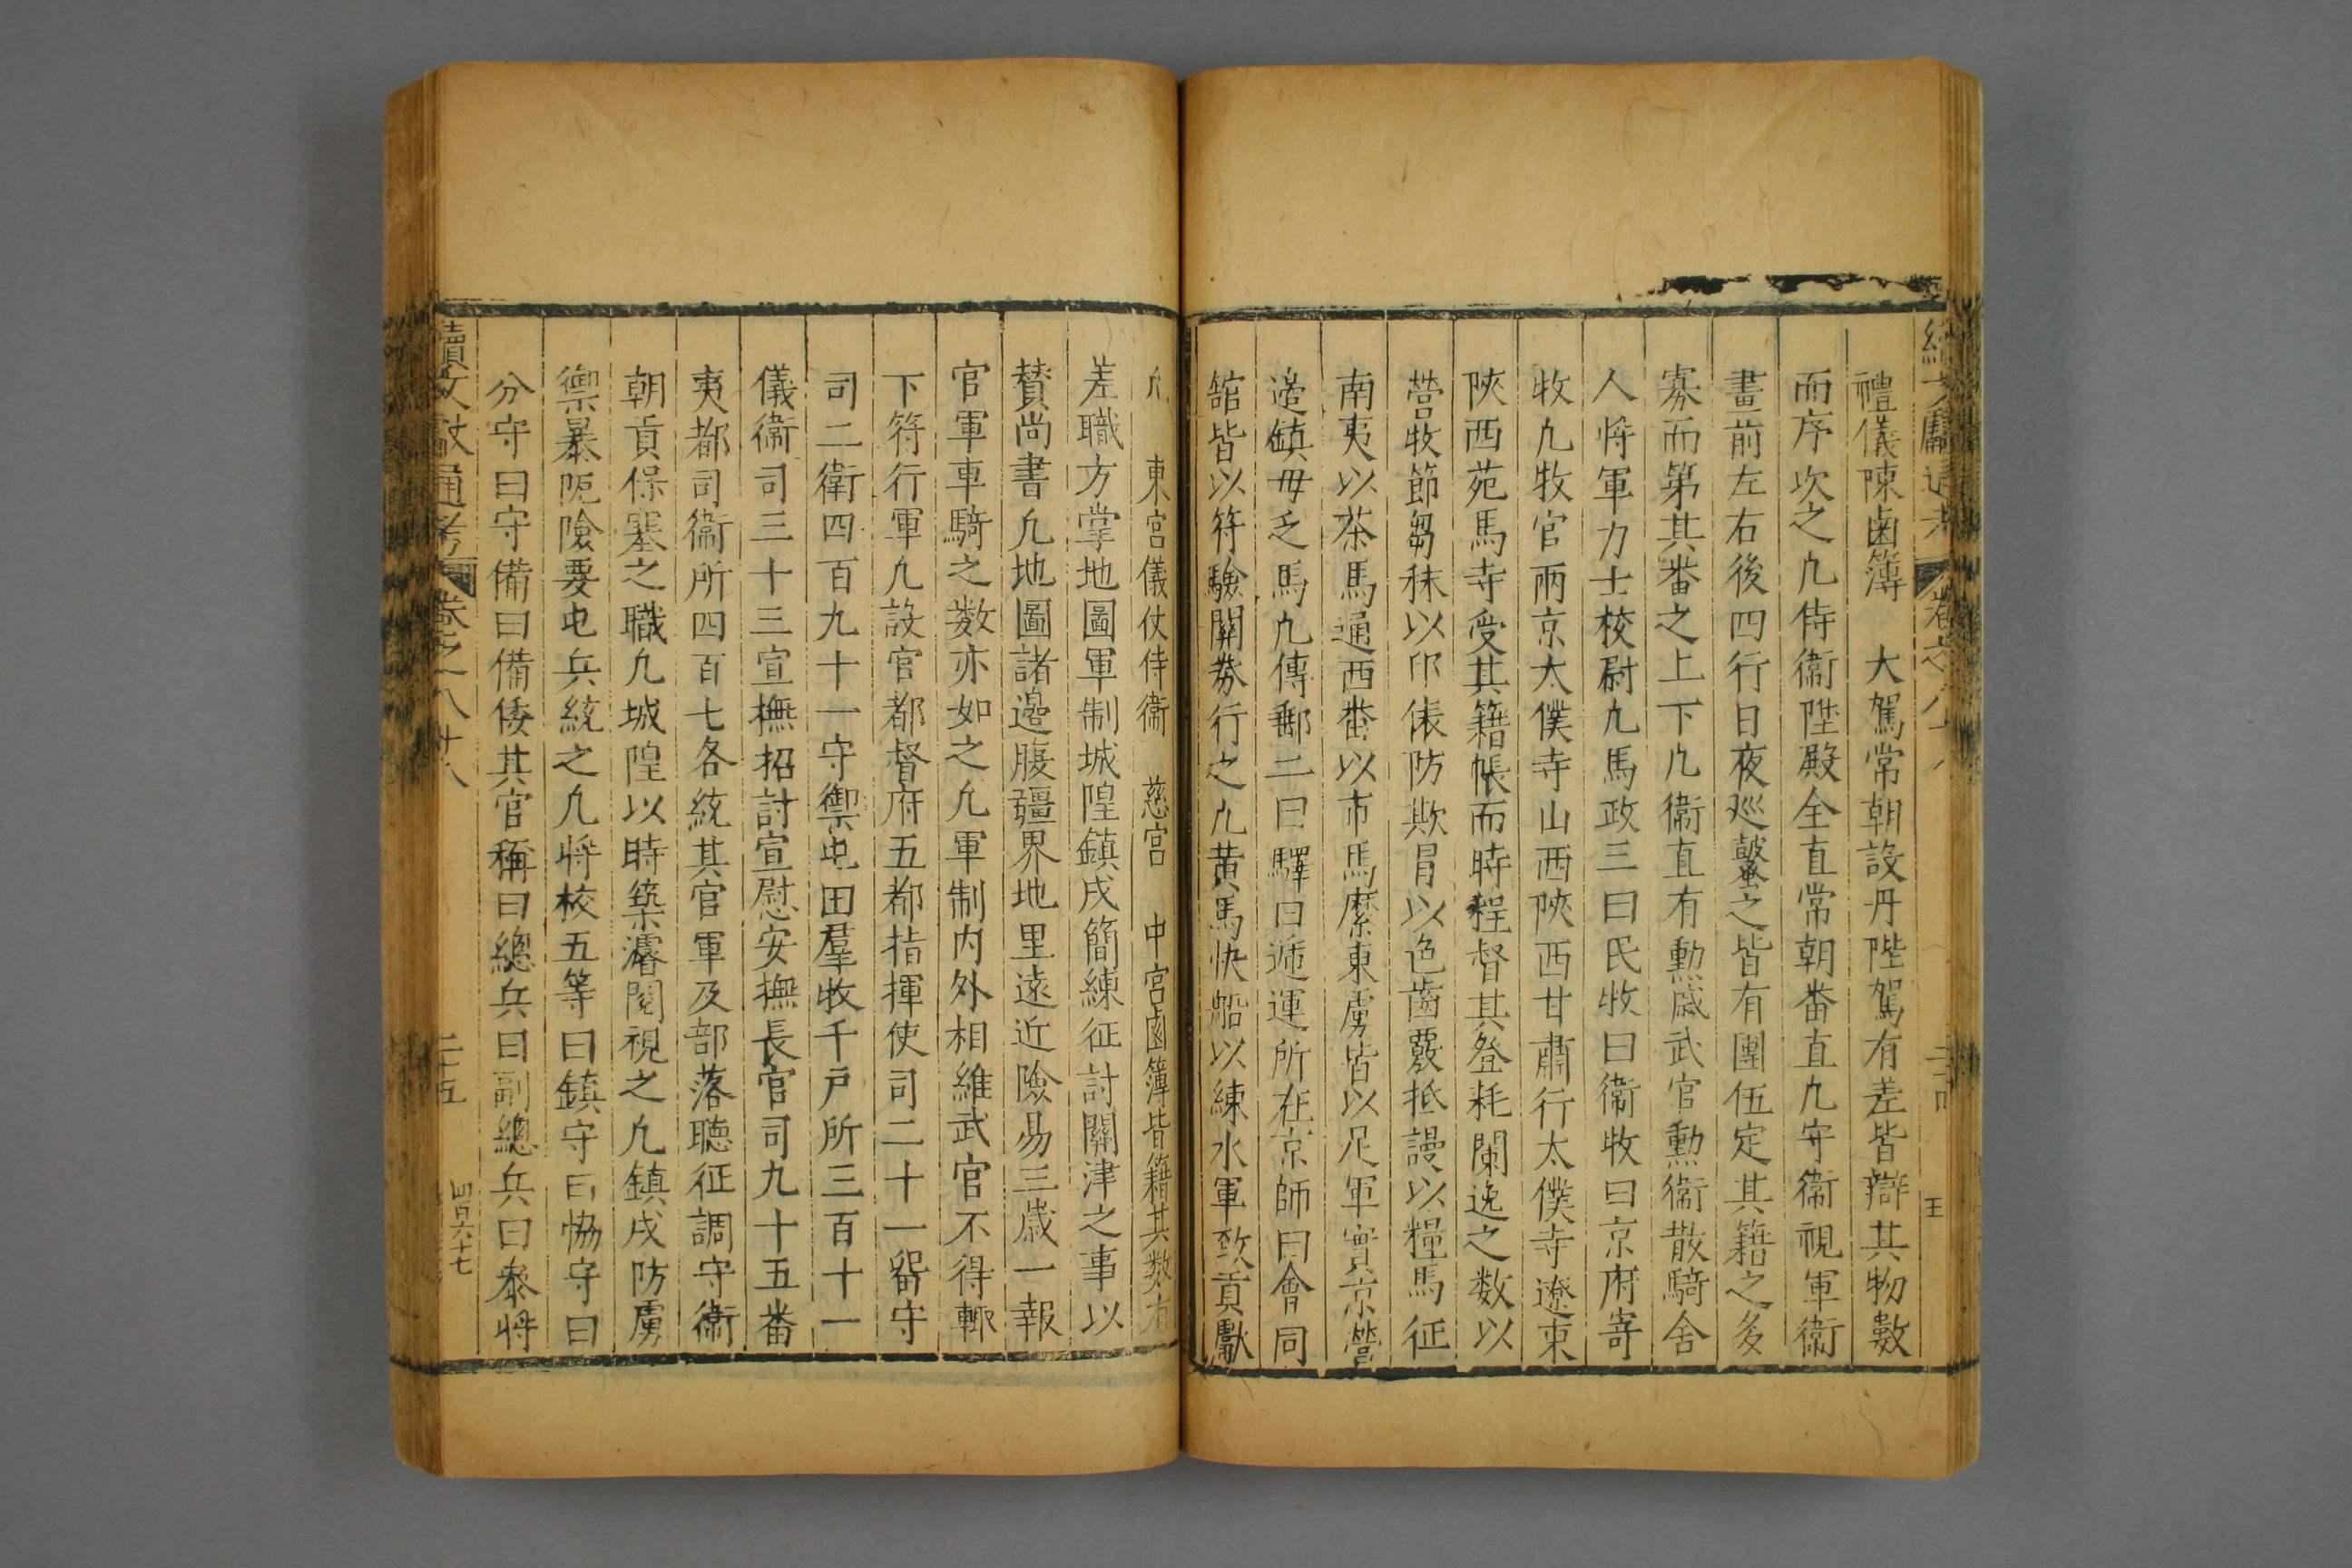 禮儀陳鹵簿　大駕常朝設丹陛駕有差皆辯其物數
而序次之凡侍衞陛殿全直常朝番直凡守衞視軍衞
畫前左右後四行日夜廵鼜之皆有團伍定其籍之多
寡而第其番之上下凡衞直有勲戚武官勲衞散騎舍
人将軍力士校尉凡馬政三曰民牧曰衞牧曰京府寄
牧凡牧官兩京太僕寺山西陝西甘肅行太僕寺遼東
陝西苑馬寺受其籍帳而時程督其登耗闌逸之数以
營牧節芻秣以印俵防欺冒以色齒覈抵謾以糧馬征
南夷以茶馬通西畨以市馬縻東虜皆以足軍實京營
邉鎮毋乏馬凡傳郵二曰驛曰遞運所在京師曰會同
舘皆以符驗關劵行之凡黄馬快船以練水軍致貢獻
凡　東宮儀仗侍衞　慈宮　中宮鹵簿皆籍其数有
差職方掌地圖軍制城隍鎮戍簡練征討關津之事以
賛尚書凡地圖諸邉腹疆界地里遠近險易三歲一報
官軍車騎之数亦如之凡軍制内外相維武官不得輙
下符行軍凡設官都督府五都指揮使司二十一留守
司二衞四百九十一守禦屯田羣牧千戸所三百十一
儀衞司三十三宣撫招討宣慰安撫長官司九十五番
夷都司衞所四百七各統其官軍及部落聽征調守衞
朝貢保塞之職凡城隍以時築濬閱視之凡鎮戍防虜
禦暴阨險要屯兵統之凡将校五等曰鎮守曰恊守曰
分守曰守備曰備倭其官稱曰總兵曰副總兵曰叅将
續文獻通考　卷之八十八　二十五　四百六十七